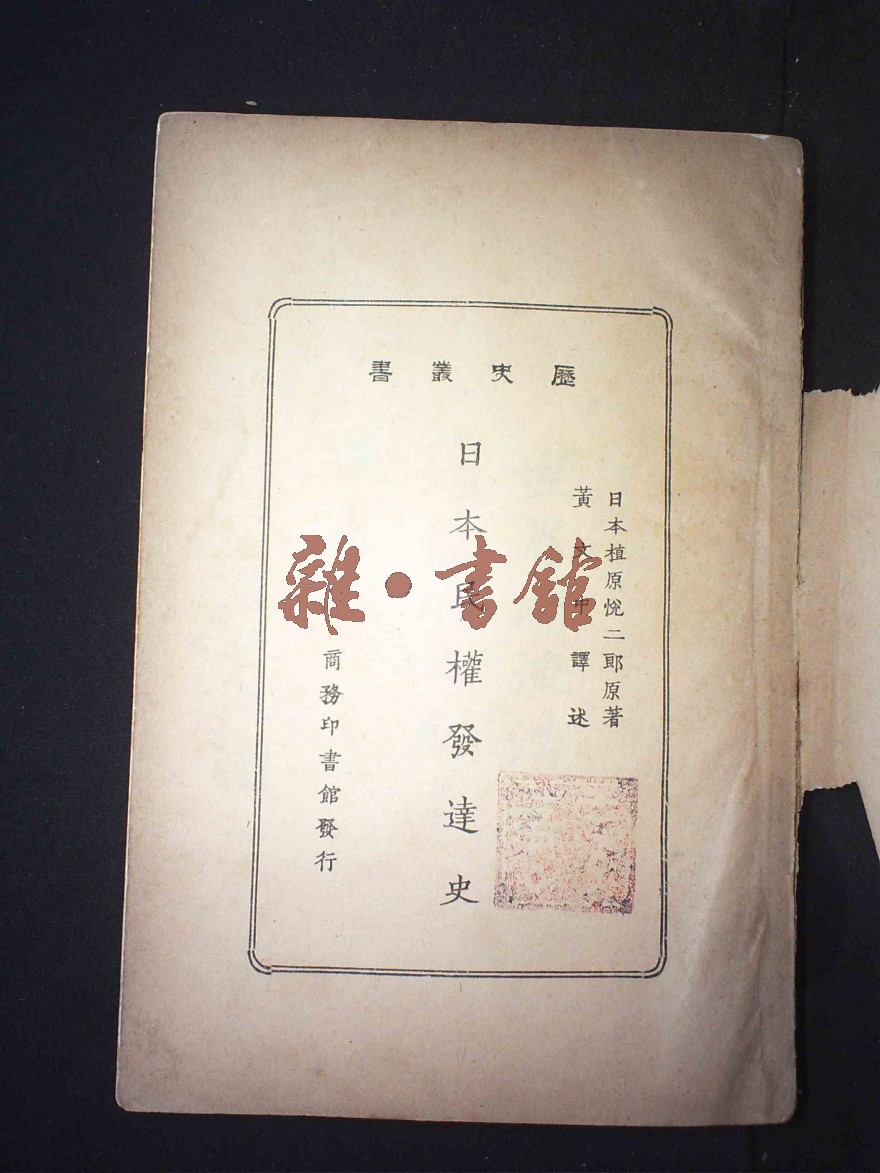 歷史叢書
日本植原悅二郎原著
黃文中譯述
日本民權發達史
商務印書館發行
雜·書館